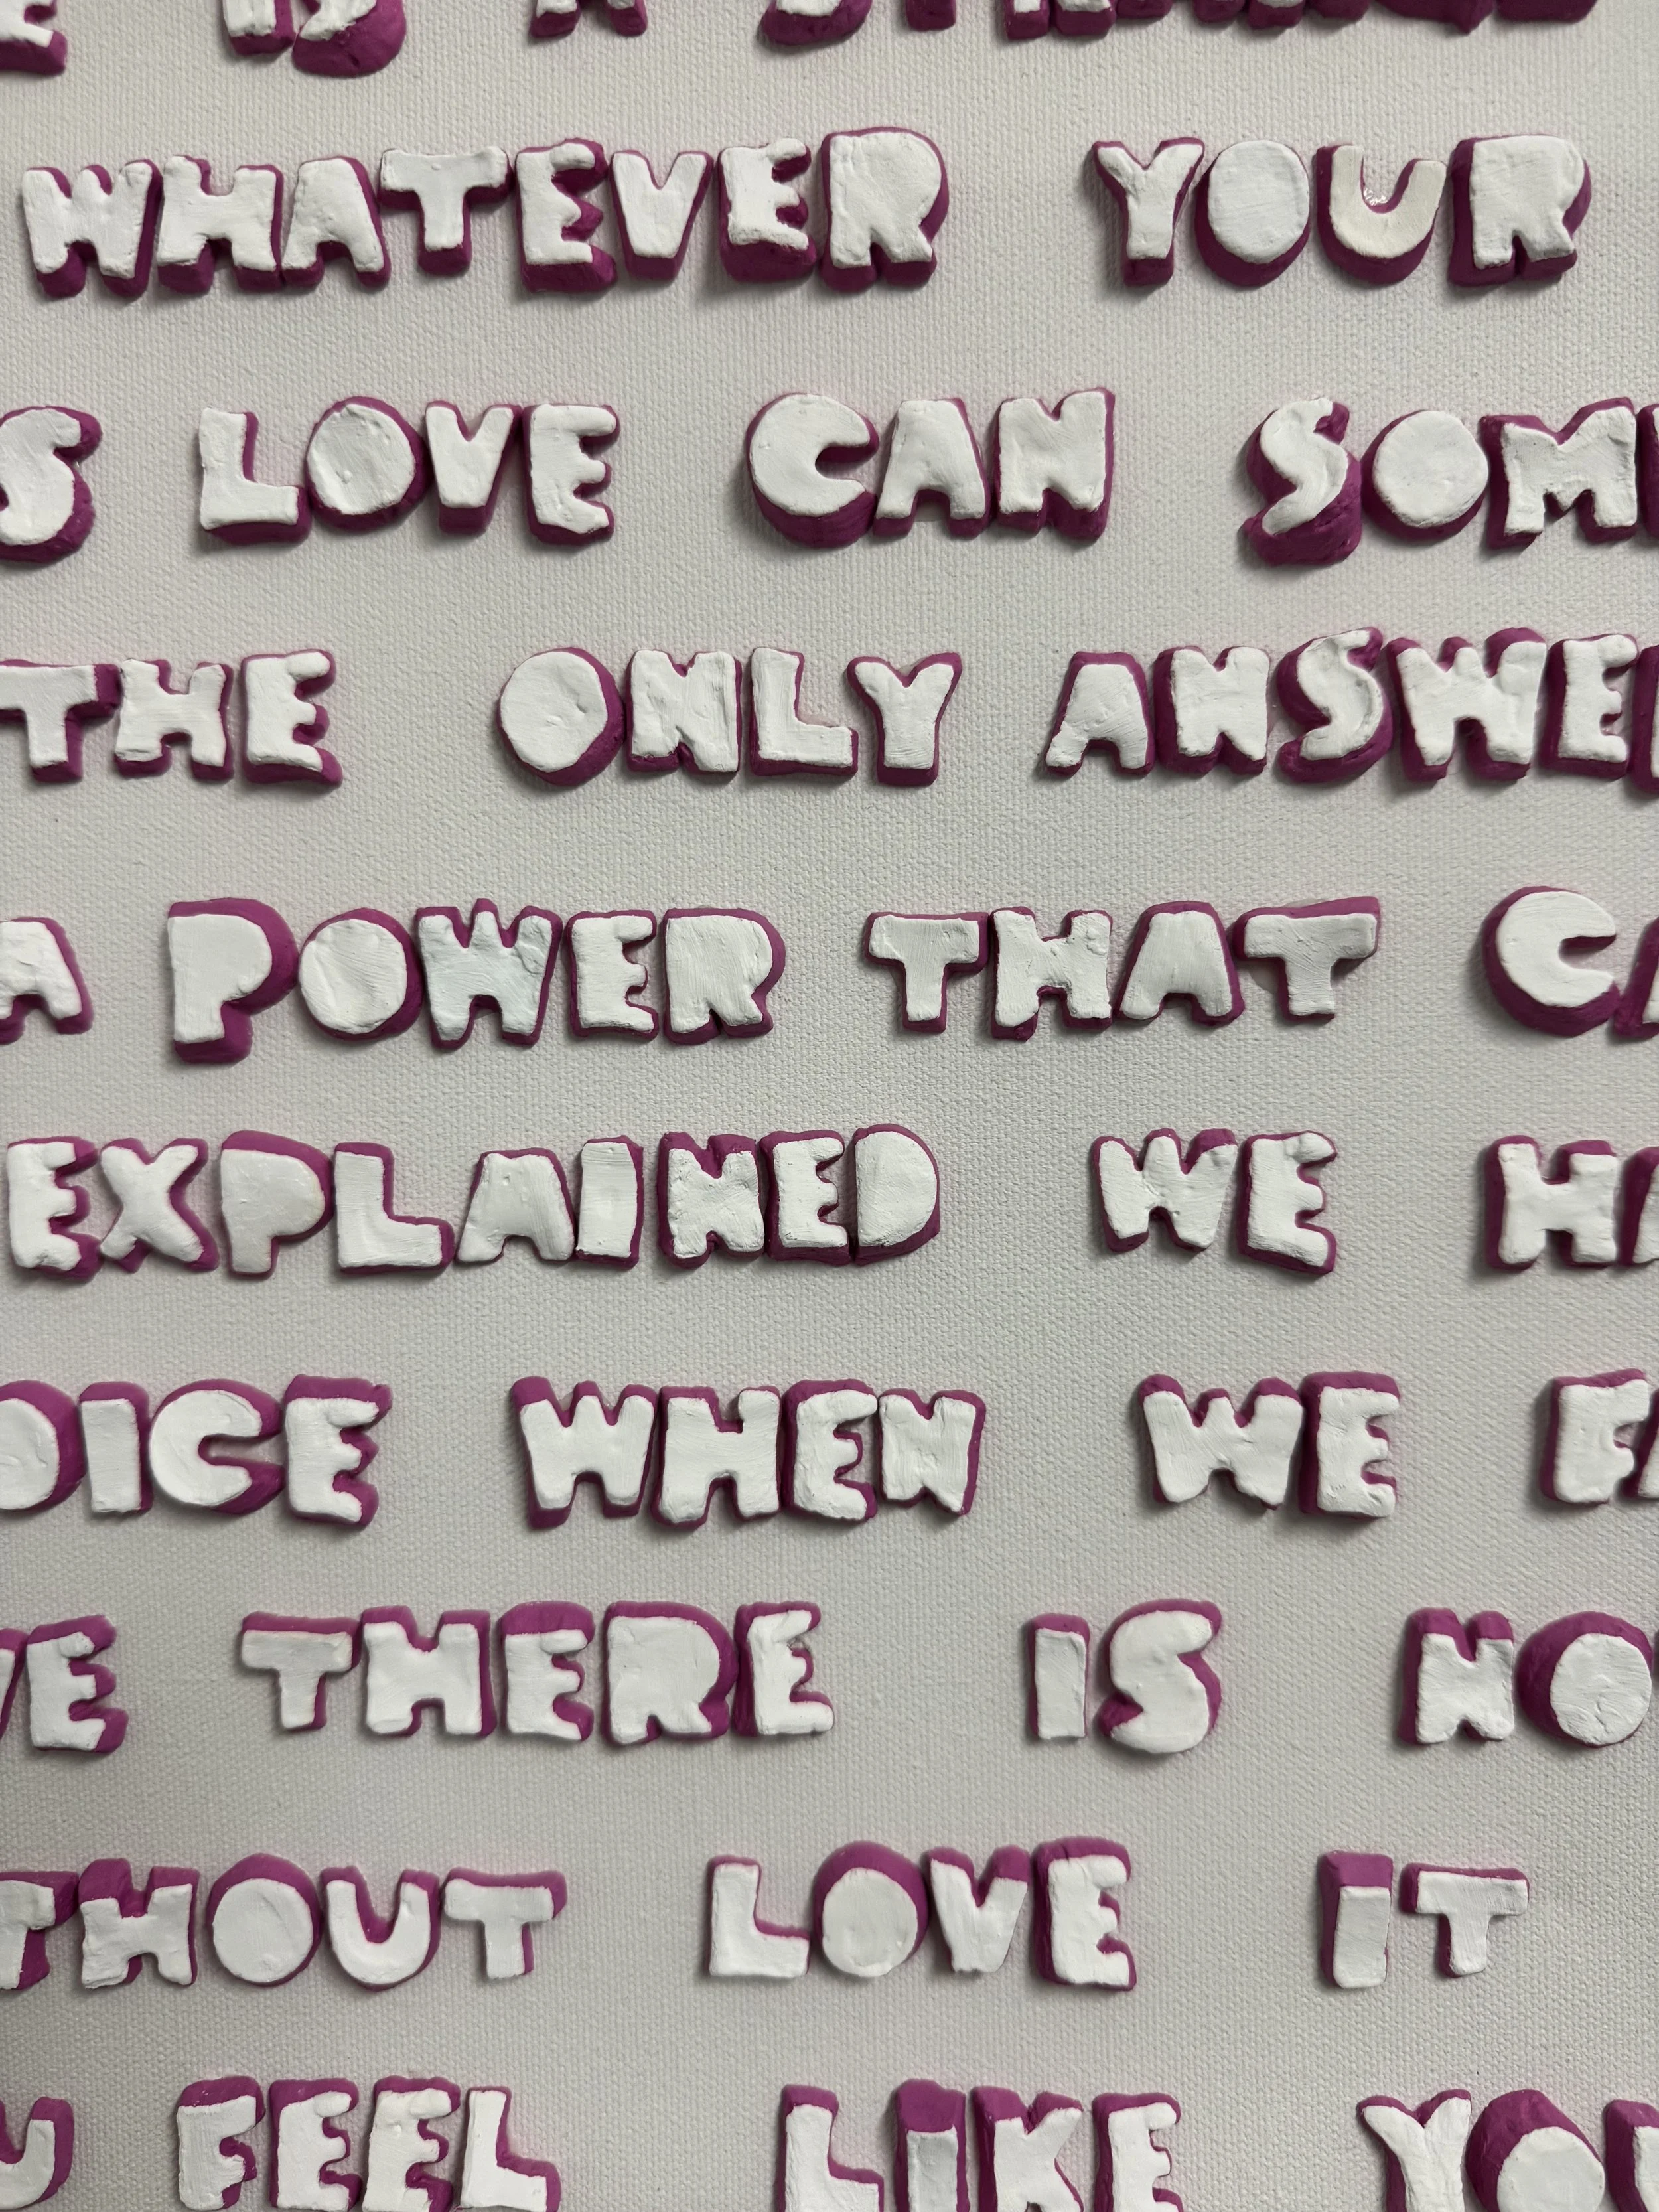 IS A
WHATEVER YOUR
S LOVE CAN SOM
THE ONLY ANSWE
A POWER THAT CA
EXPLAINED WE HA
OICE WHEN WE FA
VE THERE IS NO
THOUT LOVE IT
U FEEL LIKE YOU